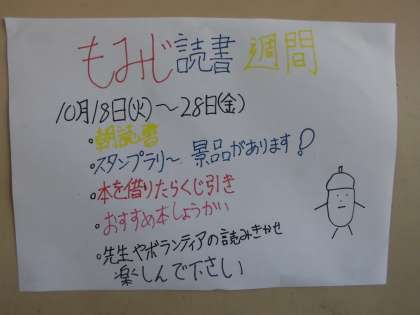 もみじ読書週間
10月18日(火)〜28日(金)
・朝読書
・スタンプラリ〜 景品があります!
・本を借りたらくじ引き
・おすすめ本しょうかい
・先生やボランティアの読みきかせ
楽しんで下さい